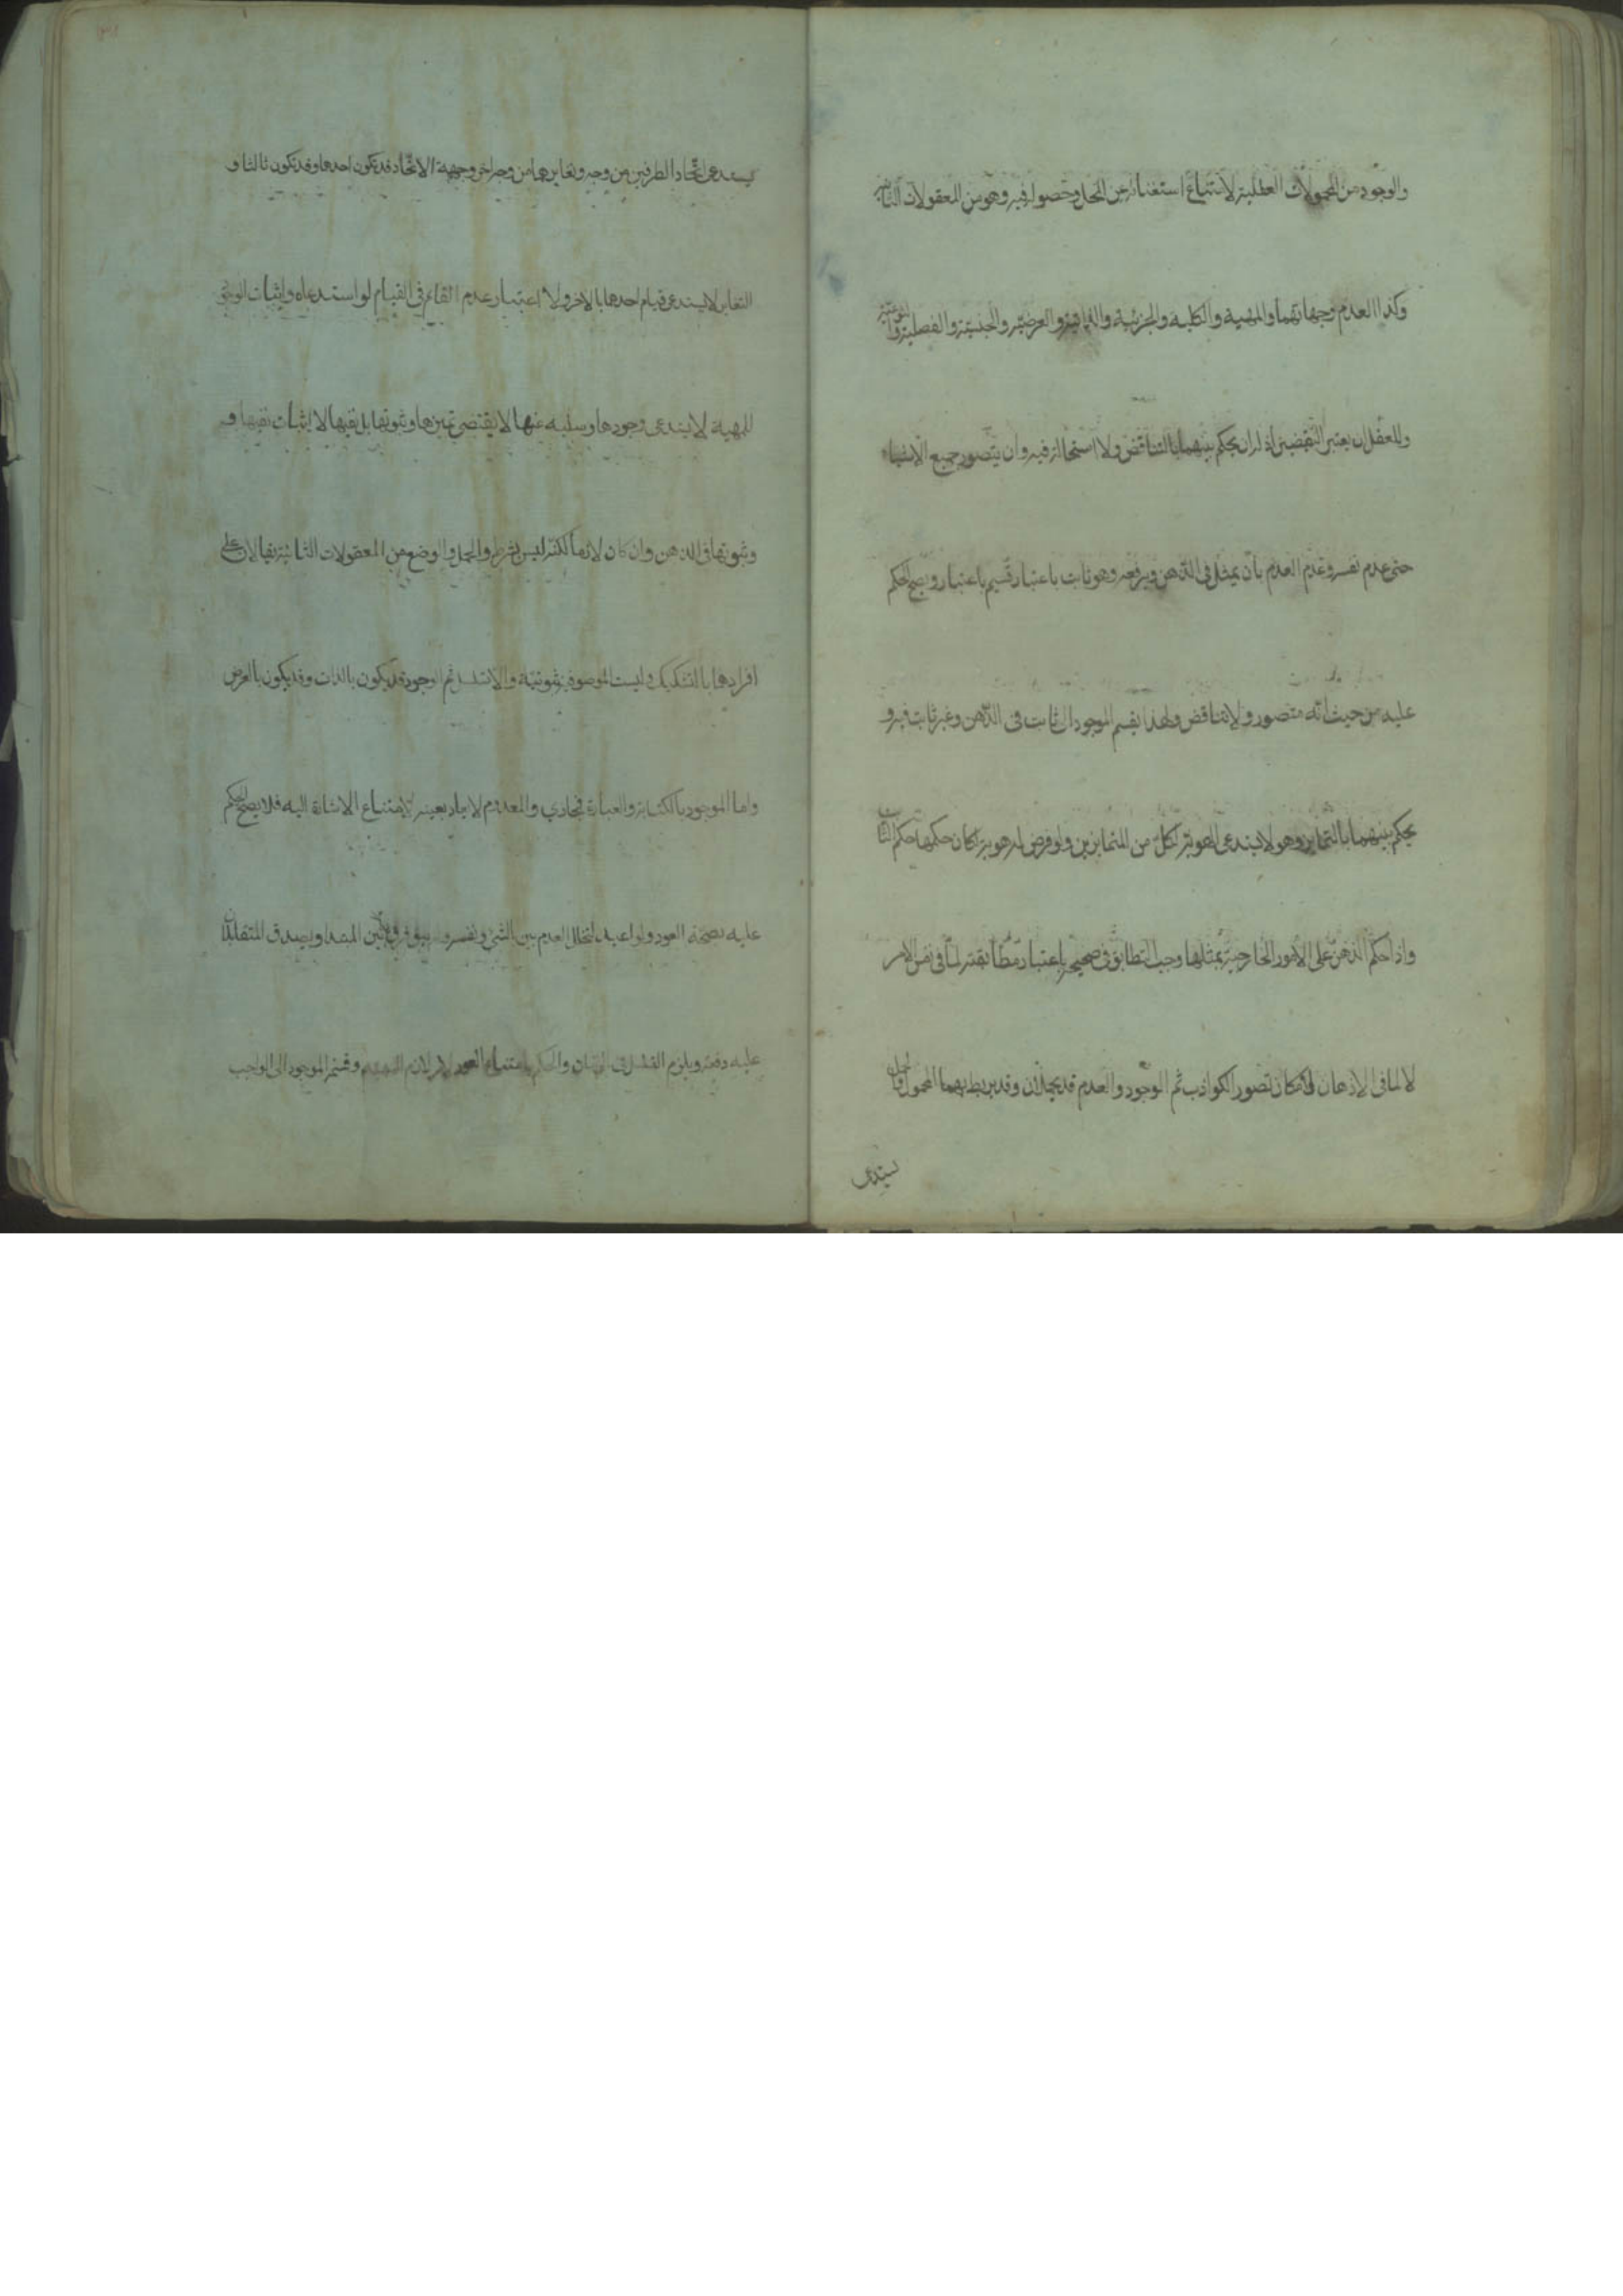 والوجود من المحمولات العقلية لامتناع استغنائه عن المحل وحصوله فيه وهو من المعقولات الثانية
وكذا العدم وجهاتهما والمهية والكلية والجزئية والذاتية والعرضية والجنسية والفصلية والنوعية
وللعقل ان يعتبر النقيضين اذ له ان يحكم بينهما بالتناقض ولا استحالة فيه وان يتصور جميع الاشياء
حتى عدم نفسه وعدم العدم بان يمثل فى الذهن ويرفعه وهو ثابت باعتبار قسيم باعتبار ويصح الحكم
عليه من حيث انه متصور ولا تناقض ولهذا يقسم الموجود الى ثابت فى الذهن وغير ثابت فيه و
يحكم بينهما بالتمايز وهو لا يستدعى الهوية لكل من المتمايزين ولو فرض له هوية لكان حكمها حكم الثابت
واذا حكم الذهن على الامور الخارجية بمثلها وجب التطابق فى صحيحه باعتبار مطابقته لما فى نفس الامر
لا لما فى الاذهان لامكان تصور الكواذب ثم الوجود والعدم قد يحملان وقد يربط بهما المحمول والحمل
يستدعى
يستدعى اتحاد الطرفين من وجه وتغايرهما من وجه اخر وجهة الاتحاد قد تكون احدهما وقد تكون ثالثا و
التغاير لا يستدعى قيام احدهما بالاخر ولا اعتبار عدم القائم فى القيام لو استدعاه واثبات الوجود
للمهية لا يستدعى وجودها وسلبه عنها لا يقتضى تميزها وثبوتها بل نفيها لا اثبات نفيها و
وثبوتها فى الذهن وان كان لازما لكنه ليس بشرط والحمل والوضع من المعقولات الثانية يقالان على
افرادهما بالتشكيك وليست الموصوفية ثبوتية والا تسلسل ثم الوجود قد يكون بالذات وقد يكون بالعرض
واما الموجود بالكتابة والعبارة فمجازى والمعدوم لا يعاد بعينه لامتناع الاشارة اليه فلا يصح الحكم
عليه بصحة العود ولو اعيد لتخلل العدم بين الشئ ونفسه ولم يبق فرق بين المبتدا ويصدق المتقابلان
عليه دفعة ويلزم التسلسل فى الزمان والحكم بامتناع العود لامر لازم للمهية وقسمة الموجود الى الواجب